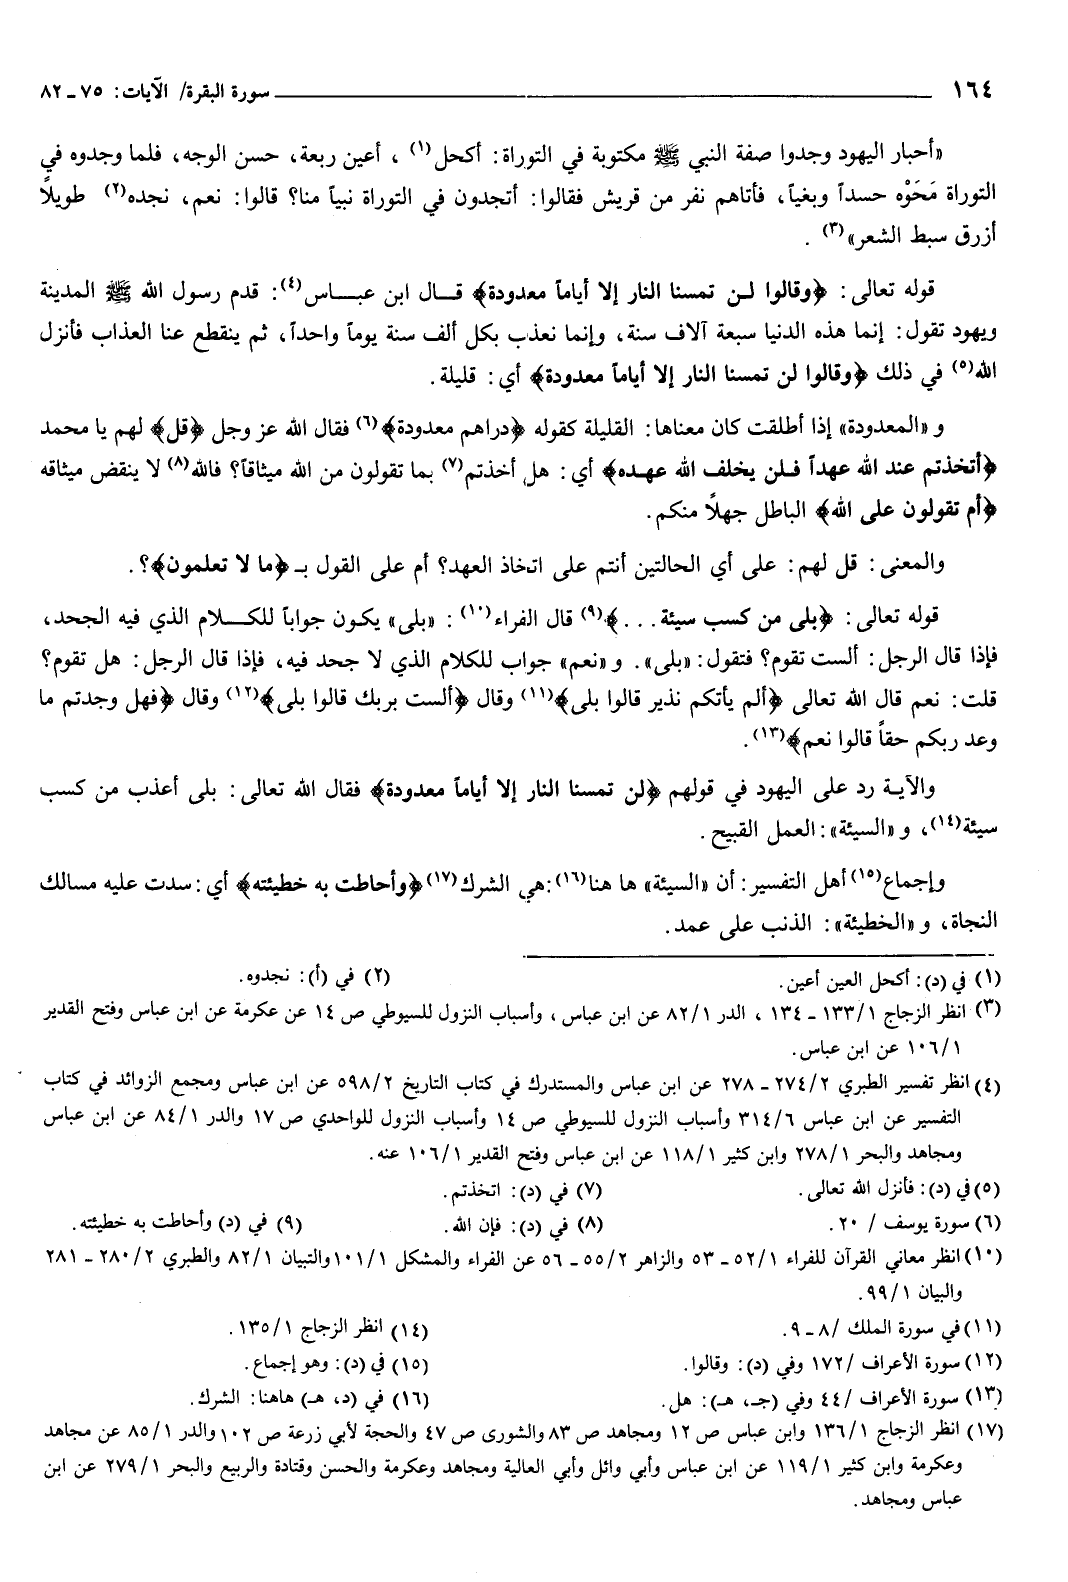 ١٦٤ سورة البقرة/ الآيات: ٧٥ ـ ٨٢
«أحبار اليهود وجدوا صفة النبي ﷺ مكتوبة في التوراة: أكحل(١) ، أعين ربعة، حسن الوجه، فلما وجدوه في
التوراة مَحَوْه حسداً وبغياً، فأتاهم نفر من قريش فقالوا: أتجدون في التوراة نبياً منا؟ قالوا: نعم، نجده(٢) طويلاً
أزرق سبط الشعر»(٣) .
قوله تعالى: ﴿وقالوا لـن تمسنا النار إلا أياماً معدودة﴾ قـال ابن عبـاس(٤): قدم رسول الله ﷺ المدينة
ويهود تقول: إنما هذه الدنيا سبعة آلاف سنة، وإنما نعذب بكل ألف سنة يوماً واحداً، ثم ينقطع عنا العذاب فأنزل
الله(٥) في ذلك ﴿وقالوا لن تمسنا النار إلا أياماً معدودة﴾ أي: قليلة.
و «المعدودة» إذا أطلقت كان معناها: القليلة كقوله ﴿دراهم معدودة﴾(٦) فقال الله عز وجل ﴿قل﴾ لهم يا محمد
﴿أتخذتم عند الله عهداً فـلن يخلف الله عهـده﴾ أي: هل أخذتم(٧) بما تقولون من الله ميثاقاً؟ فالله(٨) لا ينقض ميثاقه
﴿أم تقولون على الله﴾ الباطل جهلاً منكم.
والمعنى: قل لهم: على أي الحالتين أنتم على اتخاذ العهد؟ أم على القول بـ ﴿ما لا تعلمون﴾؟.
قوله تعالى: ﴿بلى من كسب سيئة . . .﴾(٩) قال الفراء(١٠) : «بلى» يكون جواباً للكـلام الذي فيه الجحد،
فإذا قال الرجل: ألست تقوم؟ فتقول: «بلى». و «نعم» جواب للكلام الذي لا جحد فيه، فإذا قال الرجل: هل تقوم؟
قلت: نعم قال الله تعالى ﴿ألم يأتكم نذير قالوا بلى﴾(١١) وقال ﴿ألست بربك قالوا بلى﴾(١٢) وقال ﴿فهل وجدتم ما
وعد ربكم حقاً قالوا نعم﴾(١٣).
والآيـة رد على اليهود في قولهم ﴿لن تمسنا النار إلا أياماً معدودة﴾ فقال الله تعالى: بلى أعذب من كسب
سيئة(١٤)، و «السيئة»: العمل القبيح.
وإجماع(١٥) أهل التفسير: أن «السيئة» ها هنا(١٦): هي الشرك(١٧) ﴿وأحاطت به خطيئته﴾ أي: سدت عليه مسالك
النجاة، و «الخطيئة»: الذنب على عمد.
(١) في (د): أكحل العين أعين. (٢) في (أ): نجدوه.
(٣) انظر الزجاج ١/ ١٣٣ ـ ١٣٤ ، الدر ١/ ٨٢ عن ابن عباس ، وأسباب النزول للسيوطي ص ١٤ عن عكرمة عن ابن عباس وفتح القدير
١/ ١٠٦ عن ابن عباس.
(٤) انظر تفسير الطبري ٢/ ٢٧٤ ـ ٢٧٨ عن ابن عباس والمستدرك في كتاب التاريخ ٢/ ٥٩٨ عن ابن عباس ومجمع الزوائد في كتاب
التفسير عن ابن عباس ٦/ ٣١٤ وأسباب النزول للسيوطي ص ١٤ وأسباب النزول للواحدي ص ١٧ والدر ١/ ٨٤ عن ابن عباس
ومجاهد والبحر ١/ ٢٧٨ وابن كثير ١/ ١١٨ عن ابن عباس وفتح القدير ١/ ١٠٦ عنه.
(٥) في (د): فأنزل الله تعالى. (٧) في (د): اتخذتم.
(٦) سورة يوسف / ٢٠. (٨) في (د): فإن الله. (٩) في (د) وأحاطت به خطيئته.
(١٠) انظر معاني القرآن للفراء ١/ ٥٢ ـ ٥٣ والزاهر ٢/ ٥٥ ـ ٥٦ عن الفراء والمشكل ١/ ١٠١ والتبيان ١/ ٨٢ والطبري ٢/ ٢٨٠ ـ ٢٨١
والبيان ١/ ٩٩.
(١١) في سورة الملك /٨ ـ ٩. (١٤) انظر الزجاج ١/ ١٣٥.
(١٢) سورة الأعراف /١٧٢ وفي (د): وقالوا. (١٥) في (د): وهو إجماع.
(١٣) سورة الأعراف /٤٤ وفي (جـ، هـ): هل. (١٦) في (د، هـ) هاهنا: الشرك.
(١٧) انظر الزجاج ١/ ١٣٦ وابن عباس ص ١٢ ومجاهد ص ٨٣ والشورى ص ٤٧ والحجة لأبي زرعة ص ١٠٢ والدر ١/ ٨٥ عن مجاهد
وعكرمة وابن كثير ١/ ١١٩ عن ابن عباس وأبي وائل وأبي العالية ومجاهد وعكرمة والحسن وقتادة والربيع والبحر ١/ ٢٧٩ عن ابن
عباس ومجاهد.